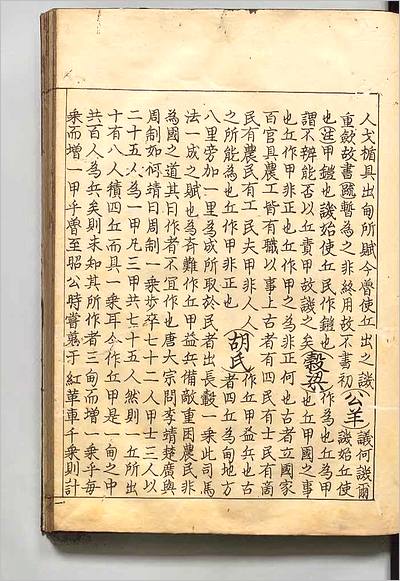 人戈楯具出甸所賦今魯使丘出之譏公羊譏何譏爾
重歛故書臧暫為之非終用故不書初譏始丘使
也註甲鎧也譏始使丘民作鎧也穀梁作為也丘為甲
謂不辨能否以丘責甲故譏之矣也丘甲國之事
也丘作甲非正也丘作甲之為非正何也古者立國家
百官具農工皆有職以事上古者有四民有士民有商
民有農民有工民夫甲非人人胡氏作丘甲益兵也古
之所能為也丘作甲非正也者四丘為甸地方
八里旁加一里為成所取於民者出長轂一乘此司馬
法一成之賦也為斉難作丘甲益兵備敵重困農民非
為國之道其曰作者不宜作也唐大宗問李靖楚廣與
周制如何靖曰周制一乘步卒七十二人甲士三人以
二十五人為一甲凡三甲共七十五人然則一丘所出
十有八人積四丘而具一乘耳今作丘甲是一甸之中
共百人為兵矣則未知其所作者三甸而增一乘乎每
乘而增一甲乎魯至昭公時嘗蒐于紅革車千乘則計